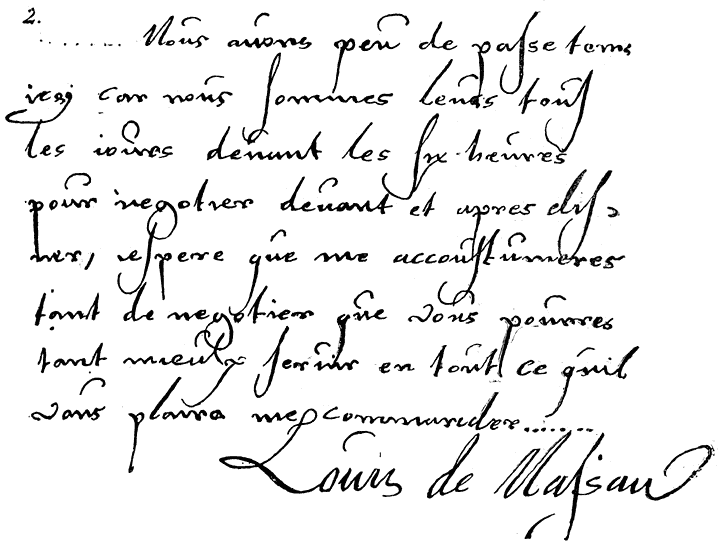 2.
....... Nous auons peu de passe tems
icy car nous sommes leues tous
les iours deuant les six heures
pour negotier deuant et apres dis-
ner, iespere que me accoustumeres
tant de negotier que vous pourres
tant mieulx seruir en tout ce quil
vous plaira me commander.......
Louis de Nassau